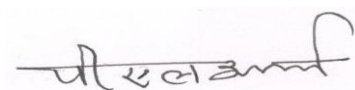 पी एल शर्मा